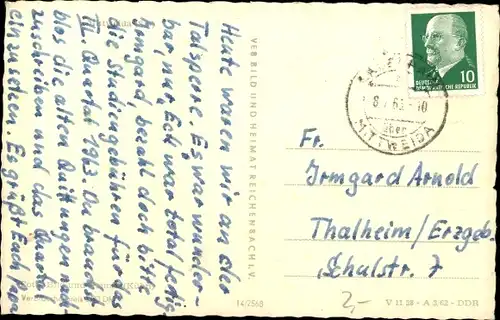 Heute waren wir an der
Talsperre. Es war wunder-
bar, nur Eck. war total fertig.
Irmgard, bezahl doch bitte
die Studiengebühren für das
III. Quartal 1963. Du brauchst
blos die alten Quittungen
zuschreiben und das Quartal
einzusetzen. Es grüßt Euch
VEB BILD UND HEIMAT REICHENBACH I. V.
14/2568
10
DEUTSCHE
DEMOKRATISCHE REPUBLIK
über
MITTWEIDA
Fr.
Irmgard Arnold
Thalheim/Erzgeb.
Schulstr. 7
2,-
V 11 28 - A 3/62 - DDR